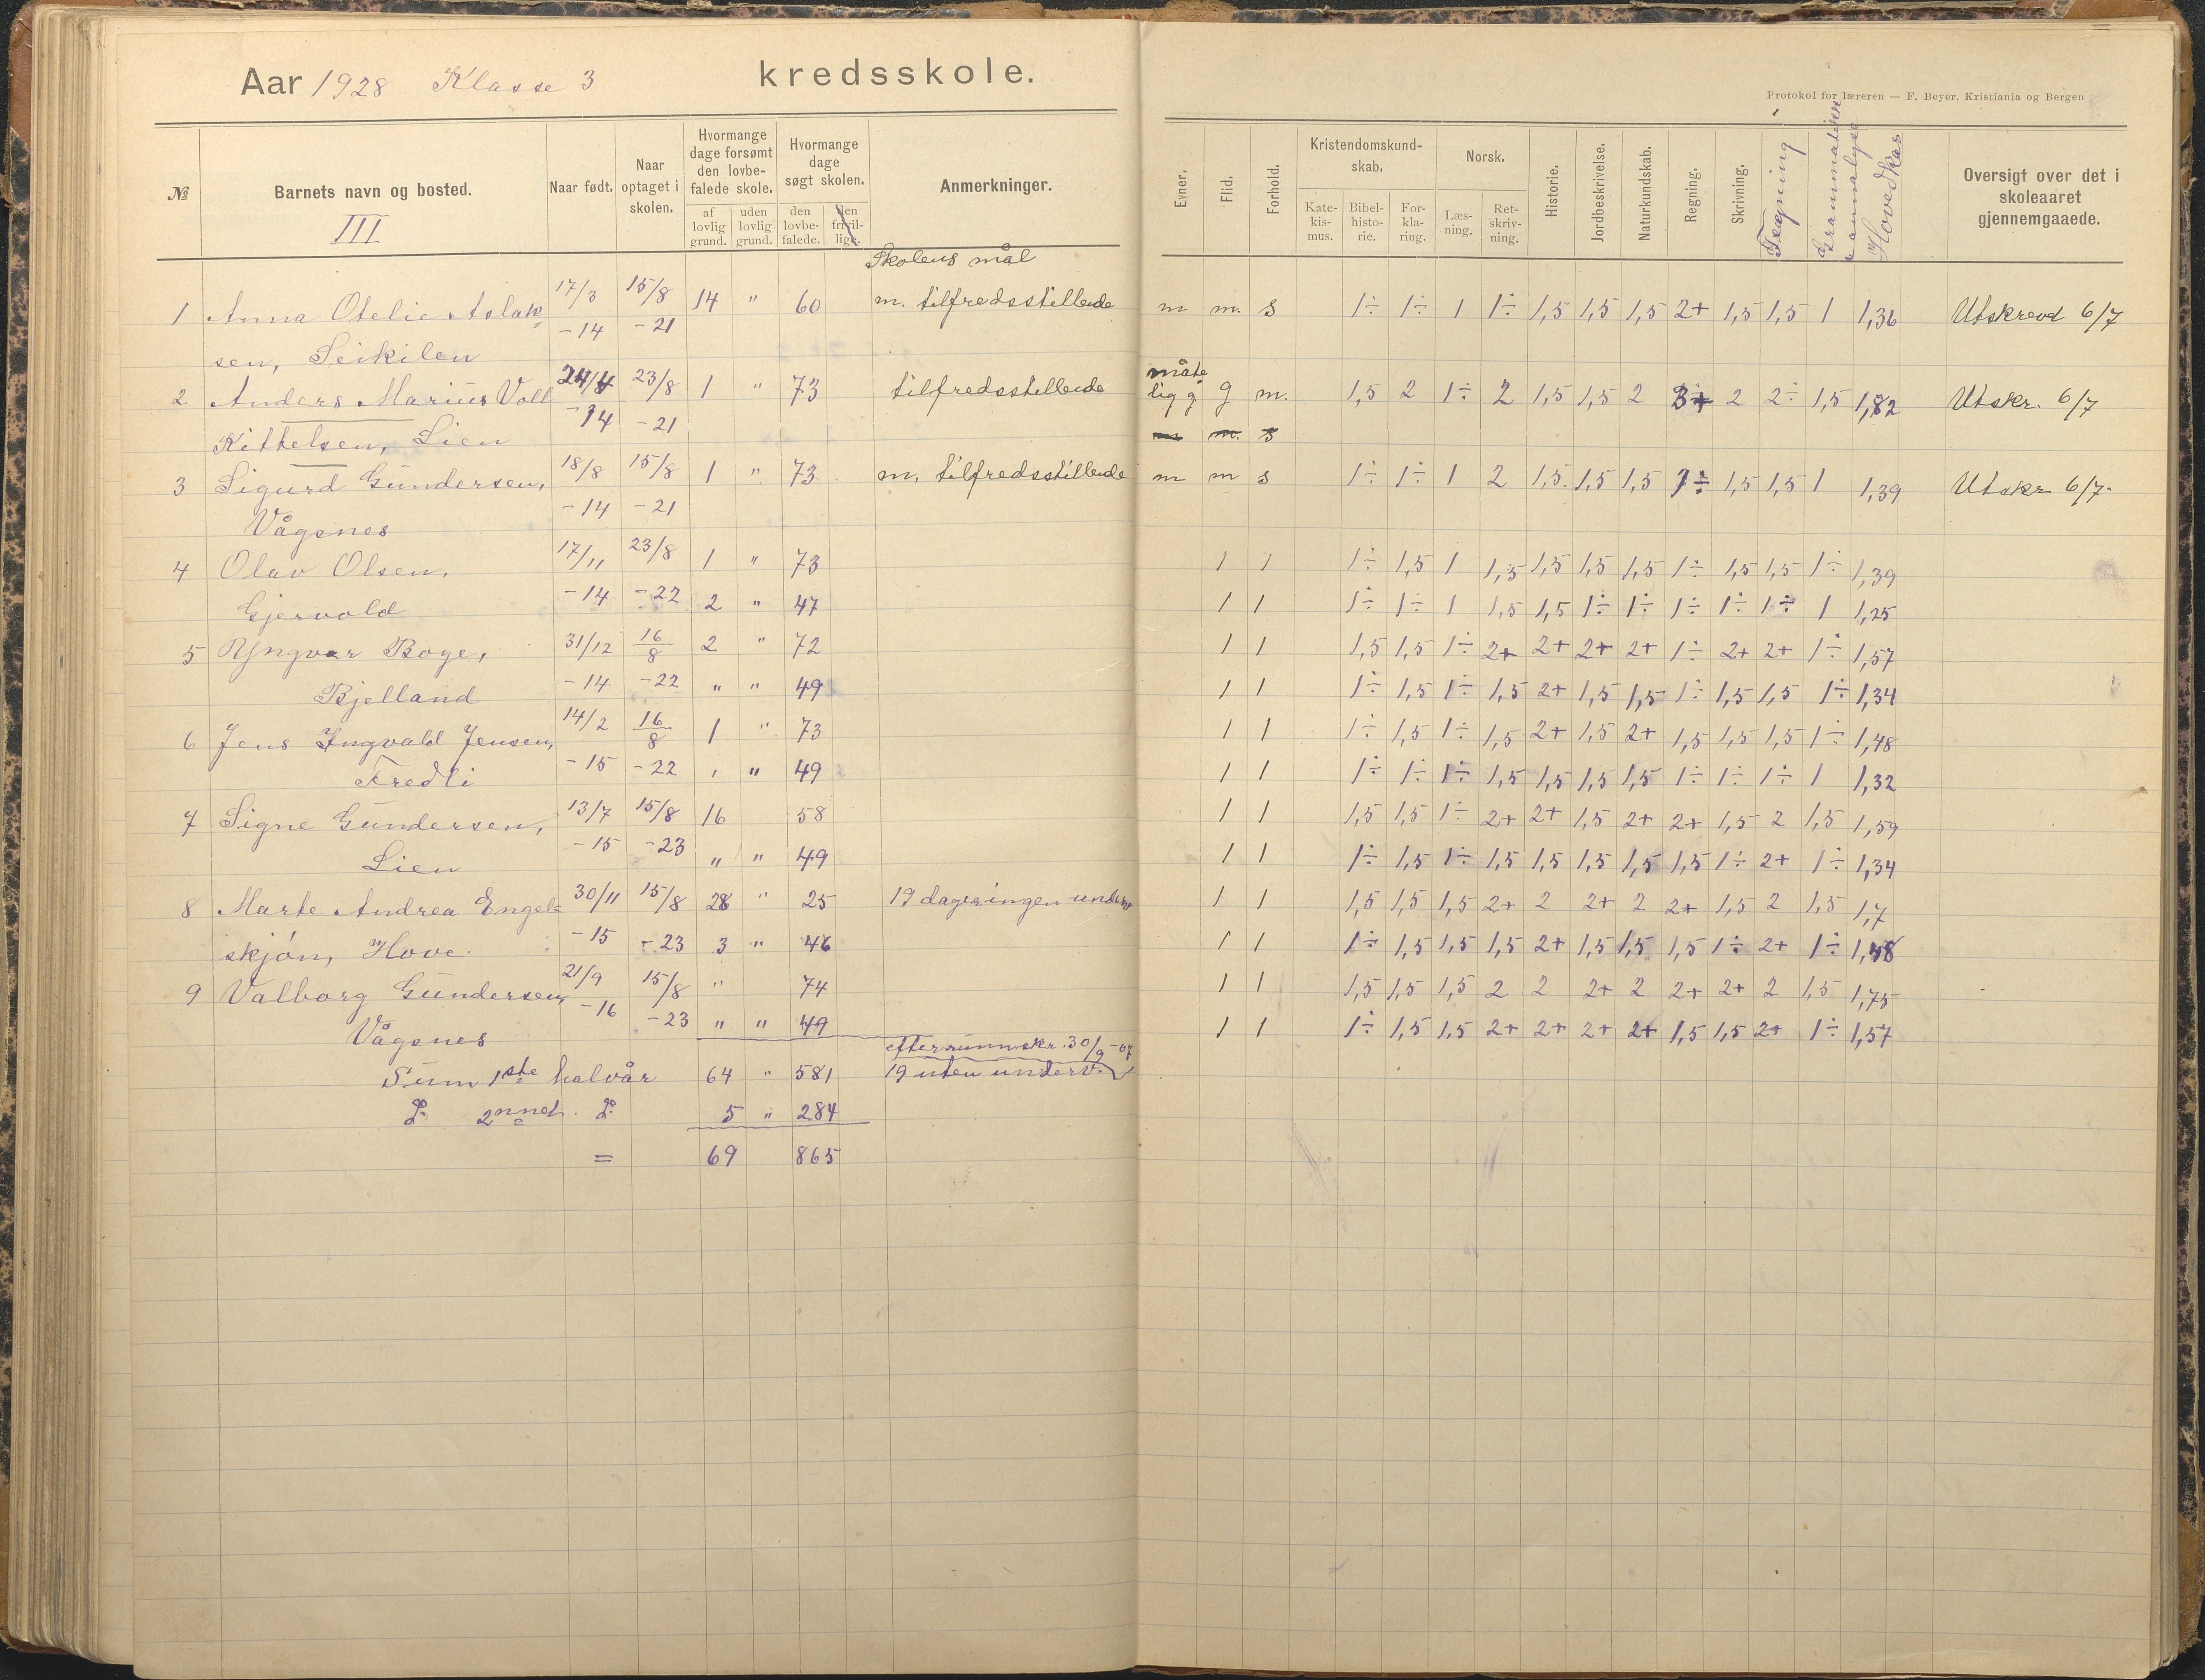 Aar 1928 Klasse 3 kredsskole.
№ Barnets navn og bosted. Naar født. Naar optaget i skolen. Hvormange dage forsømt den lovbefalede skole. Hvormange dage søgt skolen. Anmerkninger.
af lovlig grund. uden lovlig grund. den lovbefalede. den frivillige.
III
Skolens mål
1 Anna Otelie Aslak- 17/3 15/8 14 " 60 m. tilfredsstillende
-14 -21
sen, Leikilen
2 Anders Marius Voll 24/4 23/8 1 " 73 tilfredsstillende
-14 -21
Kittelsen, Lien
3 Sigurd Gundersen, 18/8 15/8 1 " 73 m. tilfredsstillende
-14 -21
Vågsnes
4 Olav Olsen, 17/11 23/8 1 " 73
Gjervold -14 -22 2 " 47
5 Yngvar Boye, 31/12 16/8 2 " 72
Bjelland -14 -22 " " 49
6 Jens Ingvald Jensen, 14/2 16/8 1 " 73
Fredli -15 -22 " " 49
7 Signe Gundersen, 13/7 15/8 16 58
Lien -15 -23 " " 49
8 Marte Andrea Engel- 30/11 15/8 28 " 25 19 dager ingen underv
skjøn, Hove. -15 -23 3 " 46
9 Valborg Gundersen, 21/9 15/8 " 74
Vågsnes -16 -23 " " 49
30/9-07
Sum 1ste halvår 64 " 581 19 uten underv.
do 2nnet do 5 " 284
= 69 865
Protokol for læreren — F. Beyer, Kristiania og Bergen
Evner. Flid. Forhold. Kristendomskundskab. Norsk. Historie. Jordbeskrivelse. Naturkundskab. Regning. Skrivning. Tegning Grammatikk Hovedkar Oversigt over det i skoleaaret gjennemgaaede.
Katekismus. Bibelhistorie. Forklaring. Læsning. Retskrivning.
m m. s 1÷ 1÷ 1 1÷ 1,5 1,5 1,5 2+ 1,5 1,5 1 1,36 Utskrevd 6/7
måte
lig g g m. 1,5 2 1÷ 2 1,5 1,5 2 3+ 2 2÷ 1,5 1,82 Utskr. 6/7
m m. s
m m s 1÷ 1÷ 1 2 1,5 1,5 1,5 1÷ 1,5 1,5 1 1,39 Utskr. 6/7.
1 1 1÷ 1,5 1 1,5 1,5 1,5 1,5 1÷ 1,5 1,5 1÷ 1,39
1 1 1÷ 1÷ 1 1,5 1,5 1÷ 1÷ 1÷ 1÷ 1÷ 1 1,25
1 1 1,5 1,5 1÷ 2+ 2+ 2+ 2+ 1÷ 2+ 2+ 1÷ 1,57
1 1 1÷ 1,5 1÷ 1,5 2+ 1,5 1,5 1÷ 1,5 1,5 1÷ 1,34
1 1 1÷ 1,5 1÷ 1,5 2+ 1,5 2+ 1,5 1,5 1,5 1÷ 1,48
1 1 1÷ 1÷ 1÷ 1,5 1,5 1,5 1,5 1÷ 1÷ 1÷ 1 1,32
1 1 1,5 1,5 1÷ 2+ 2+ 1,5 2+ 2+ 1,5 2 1,5 1,59
1 1 1÷ 1,5 1÷ 1,5 1,5 1,5 1,5 1,5 1÷ 2+ 1÷ 1,34
1 1 1,5 1,5 1,5 2+ 2 2+ 2 2+ 1,5 2 1,5 1,7
1 1 1÷ 1,5 1,5 1,5 2+ 1,5 1,5 1,5 1÷ 2+ 1÷ 1,48
1 1 1,5 1,5 1,5 2 2 2+ 2 2+ 2+ 2 1,5 1,75
1 1 1÷ 1,5 1,5 2+ 2+ 2+ 2+ 1,5 1,5 2+ 1÷ 1,57